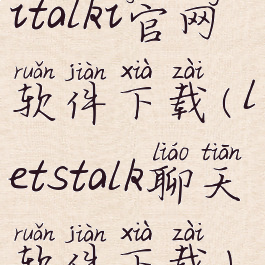 italki官网
ruǎn jiàn xià zài
软件下载(l
liáo tiān
etstalk聊天
ruǎn jiàn xià zài
软件下载)